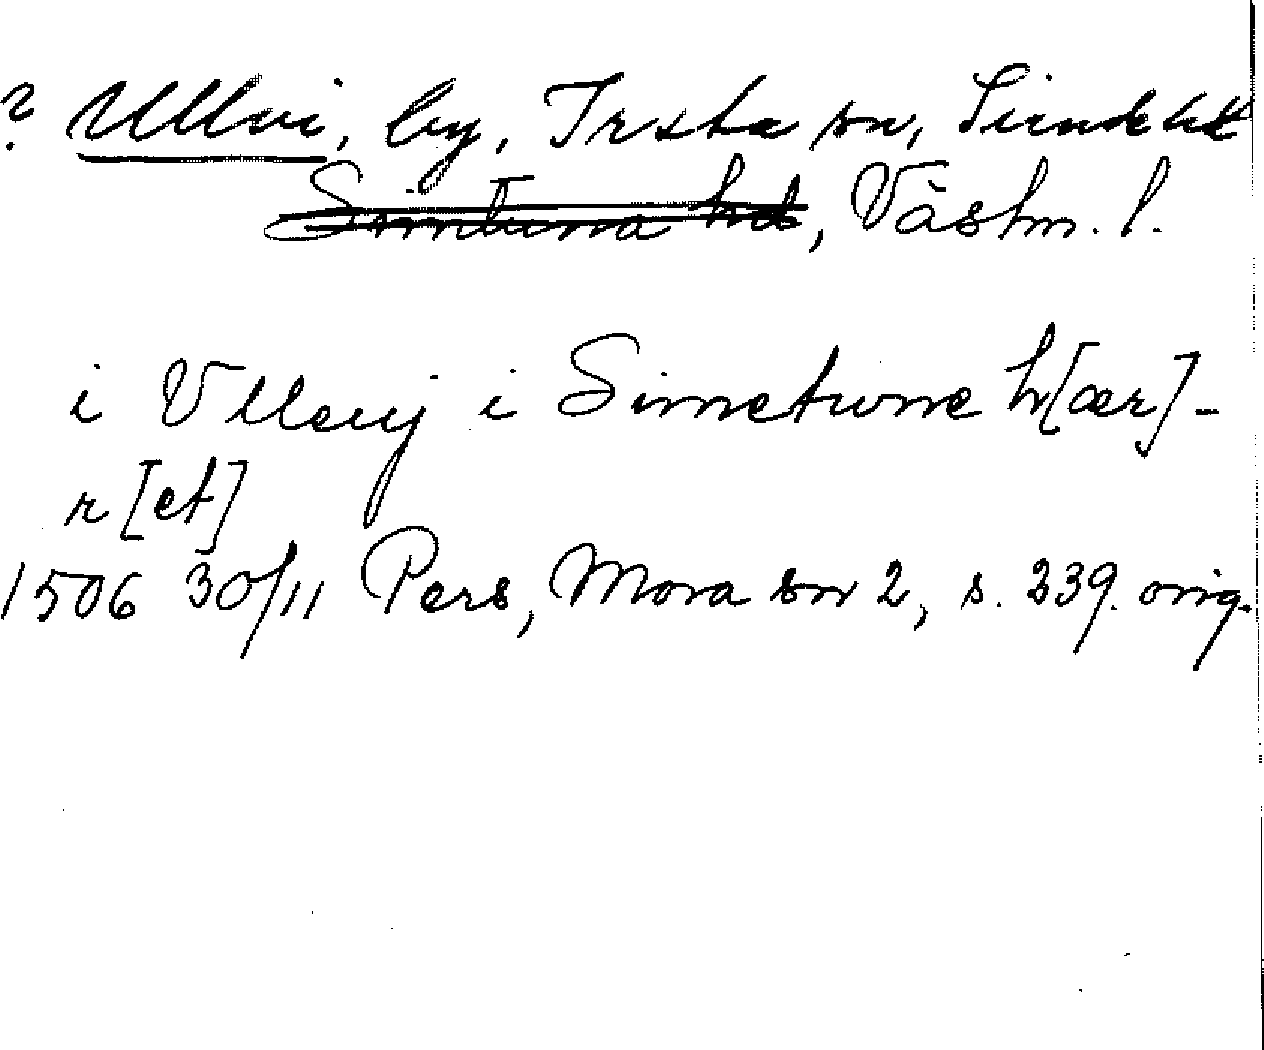 ? Ullvi, by, Irsta sn, Siende hd
Simtuna hd, Västm. l.
i Vllevij i Simetwne h[ær]-
r[et]
1506 30/11 Pers, Mora sn 2, s. 239. orig.